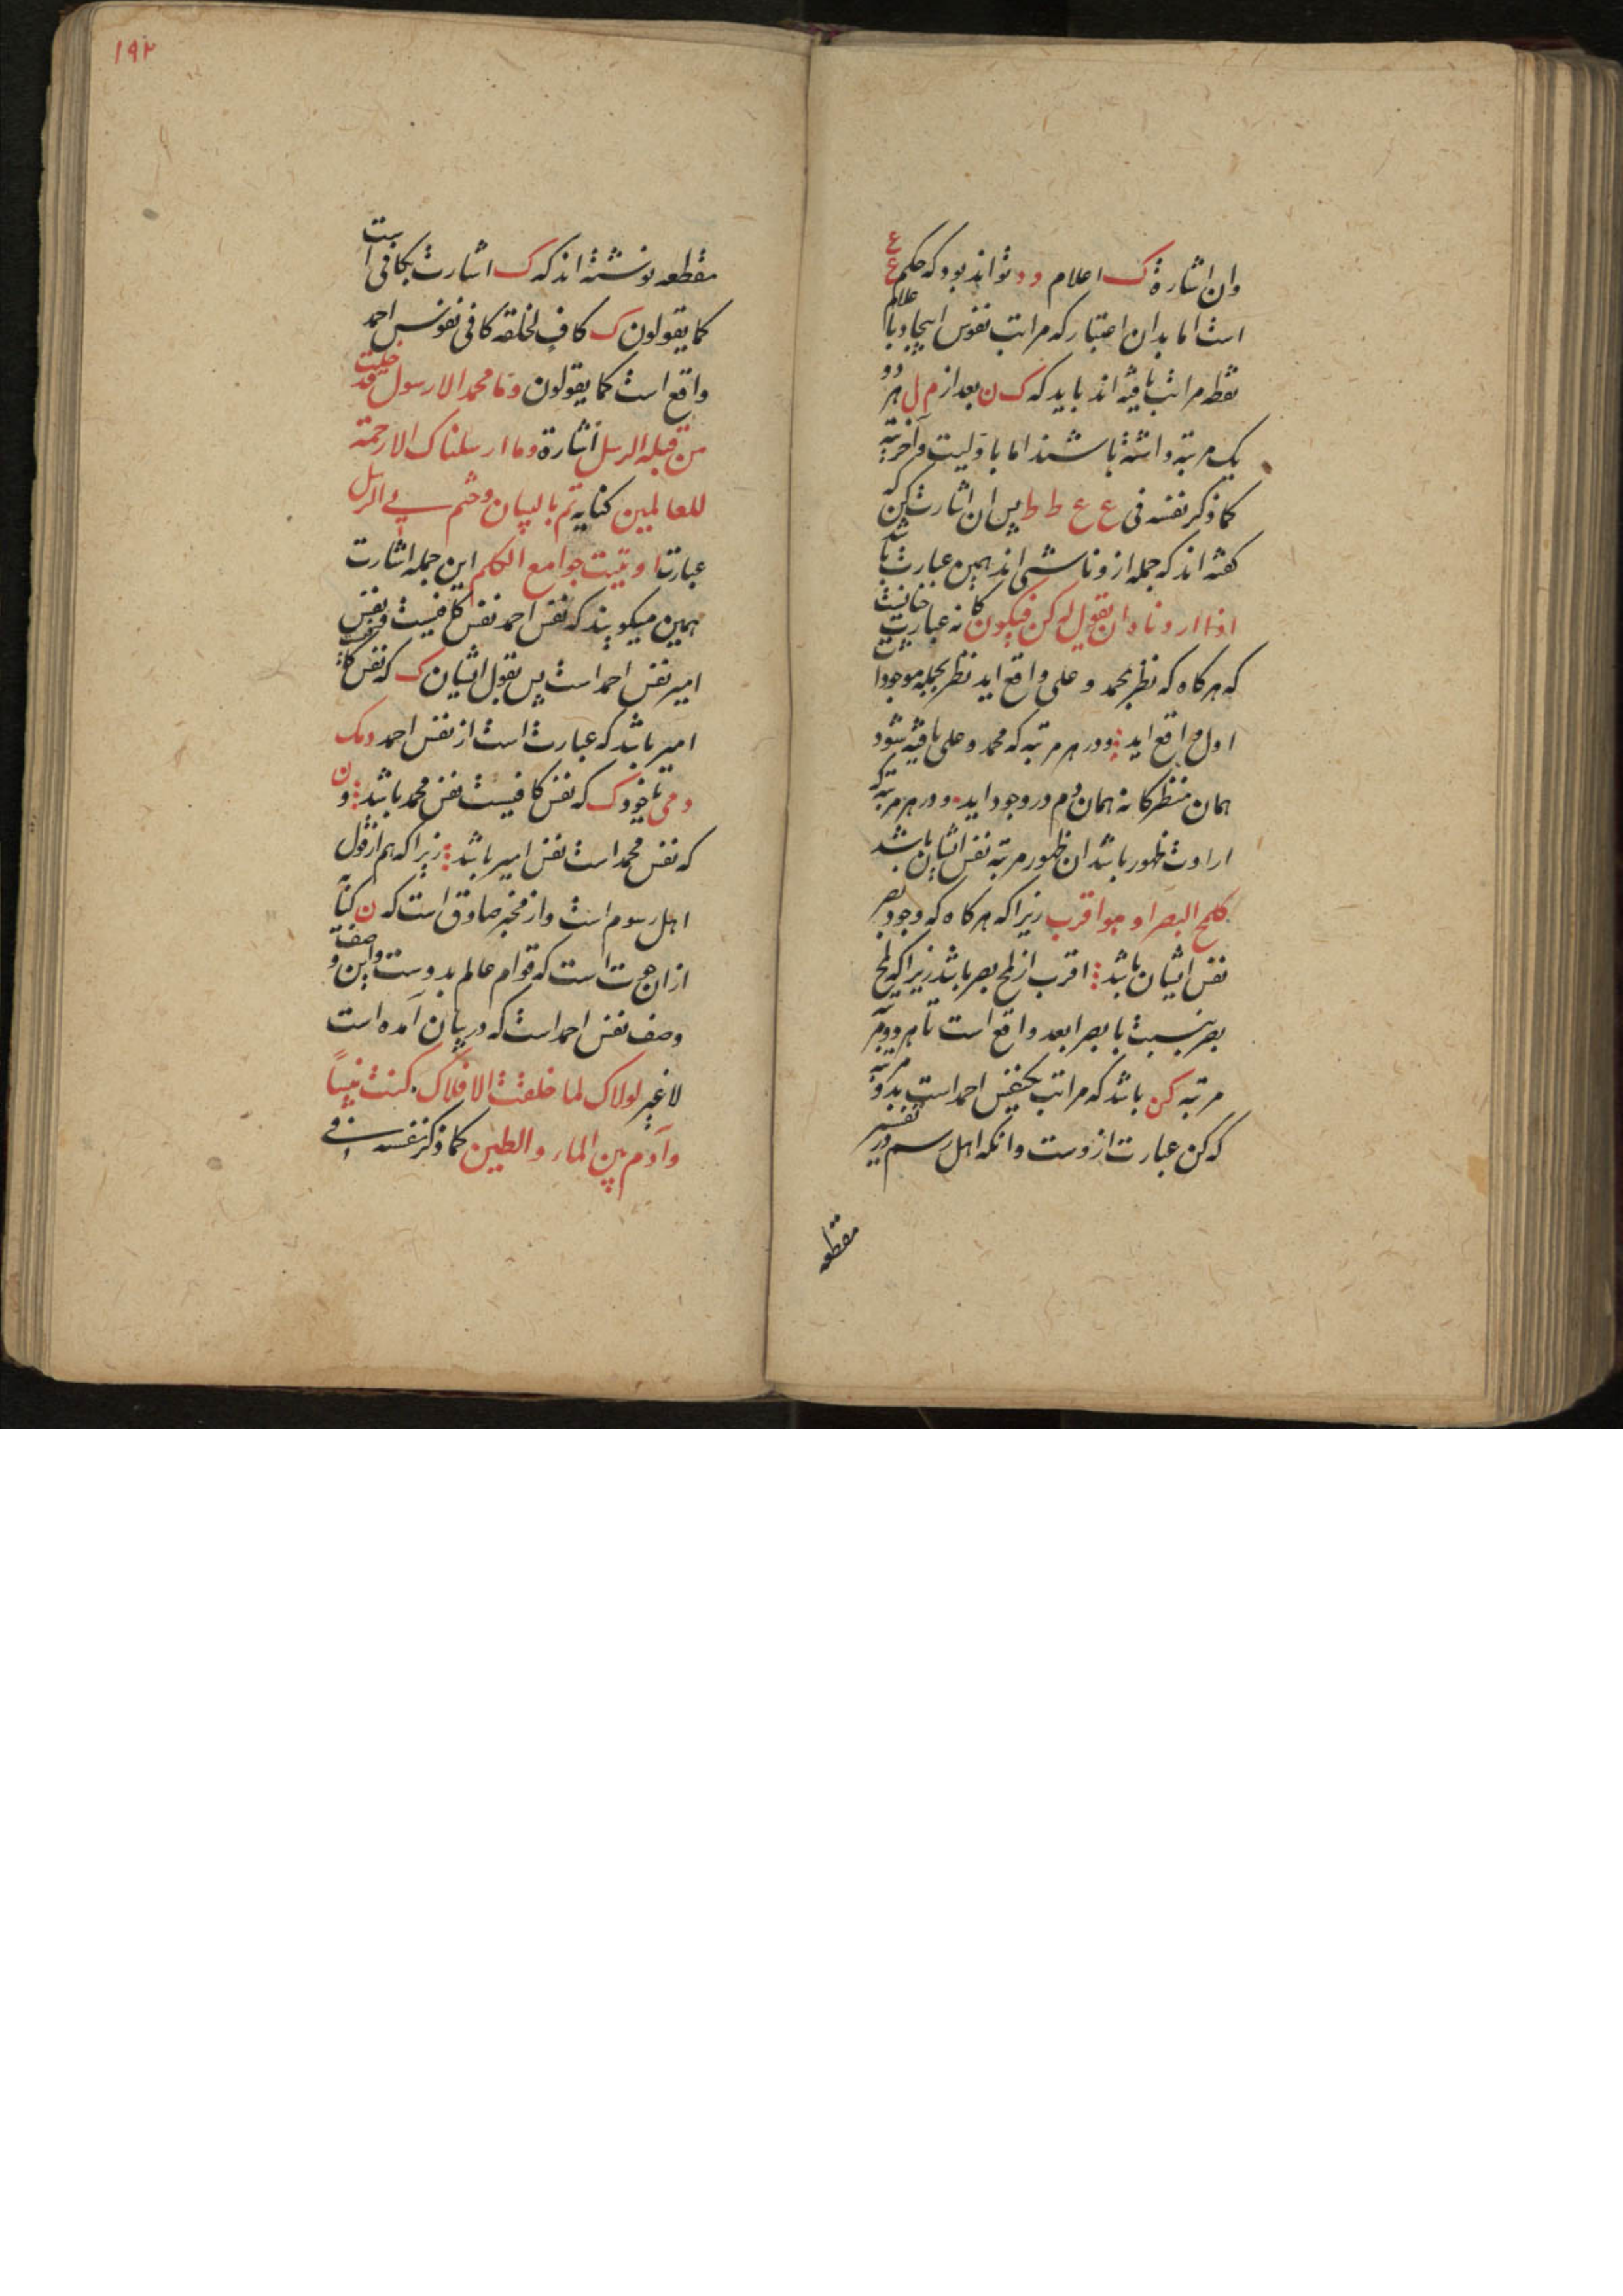 وان اشارة ک اعلام د د تواند بود که حکم ع ع
است اما بدان اعتبار که مراتب نفوس ایجاد با علام
نقطه مراتب یافته اند باید که ک ن بعد از م ل هر دو
یک مرتبه داشته باشند اما باولیت و آخریته
کما ذکر نفسه فی ع ع ط ط پس ان اشارت کن که
کفته اند که جمله ازو ناشی اند همین عبارت باشد
اذا اردناه ان نقول له کن فیکون کانه عبارت
که هرکاه که نظر بمحمد و علی واقع اید نظر بجمله موجودات
اول واقع اید و در هر مرتبه که محمد و علی یافته شود
همان منظر کانه همان دم در وجود اید و در هر مرتبه که
ارادت ظهور باشد ان ظهور مرتبه نفس ایشان باشد
کلمح البصر او هو اقرب زیرا که هرکاه که وجود بصر
نفس ایشان باشد اقرب از لمح بصر باشد زیرا که لمح
بصر بنسبت با بصر ابعد واقع است تا هر دو مرتبه
مرتبه کن باشد که مراتب یکنفس احمد است بدو مرتبه
که کن عبارت ازوست وانکه اهل رسم در تفسیر
مقطعه
۱۹۲
مقطعه نوشته اند که ک اشارت بکافی است
کما یقولون ک کاف لخلقه کافی نفوس احمد
واقع است کما یقولون وما محمد الا رسول قد خلت
من قبله الرسل اشارة وما ارسلناک الا رحمة
للعالمین کنایه تم بالبیان وختم بی الرسل
عبارت اوتیت جوامع الکلم این جمله اشارت
همین میکویند که نفس احمد نفس کافیست نفس
امیر نفس احمد است پس بقول ایشان ک که نفس
امیر باشد که عبارت است از نفس احمد دمک
دمی تا خود ک که نفس کافیست نفس محمد باشد و ن
که نفس محمد است نفس امیر باشد زیرا که هم از قول
اهل رسوم است واز مخبر صادق است که ن کنایه
ازان حوت است که قوام عالم بدوست واین وصف
وصف نفس احمد است که در بیان آمده است
لاغیر لولاک لما خلقت الافلاک کنت نبیاً
وآدم بین الماء والطین کما ذکر نفسه فی